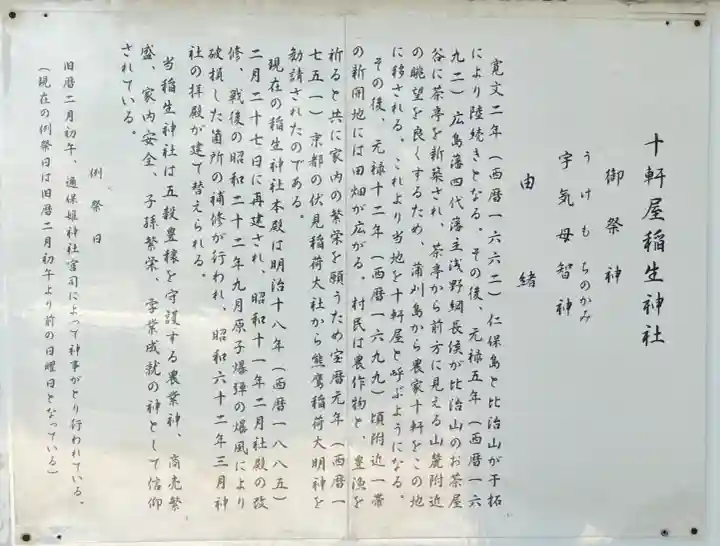 十軒屋稲生神社
御祭神
うけもちのかみ
宇気母智神
由緒
寛文二年（西暦一六六二）仁保島と比治山が干拓
により陸続きとなる。その後、元禄五年（西暦一六
九二）広島藩四代藩主浅野綱長侯が比治山のお茶屋
谷に茶亭を新築され、茶亭から前方に見える山麓附近
の眺望を良くするため、蒲刈島から農家十軒をこの地
に移される。これより当地を十軒屋と呼ぶようになる。
その後、元禄十二年（西暦一六九九）頃附近一帯
の新開地には田畑が広がる。村民は農作物と、豊漁を
祈ると共に家内の繁栄を願うため宝暦元年（西暦一
七五一）京都の伏見稲荷大社から熊鷹稲荷大明神を
勧請されたのである。
現在の稲生神社本殿は明治十八年（西暦一八八五）
二月二十七日に再建され、昭和十一年二月社殿の改
修、戦後の昭和二十二年九月原子爆弾の爆風により
破損した箇所の補修が行われ、昭和六十二年三月神
社の拝殿が建て替えられる。
当稲生神社は五穀豊穣を守護する農業神、商売繁
盛、家内安全、子孫繁栄、学業成就の神として信仰
されている。
例祭日
旧暦二月初午、邇保姫神社宮司によって神事がとり行われている。
（現在の例祭日は旧暦二月初午より前の日曜日となっている）